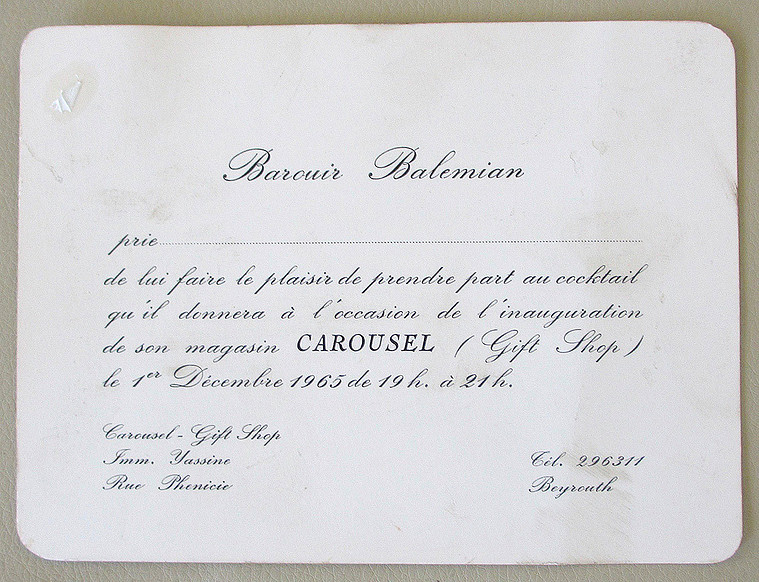 Barouir Balemian
prie........................................................................
de lui faire le plaisir de prendre part au cocktail
qu'il donnera à l'occasion de l'inauguration
de son magasin CAROUSEL ( Gift Shop )
le 1er Décembre 1965 de 19 h. à 21 h.
Carousel - Gift Shop
Imm. Yassine
Rue Phenicie
Tél. 296311
Beyrouth